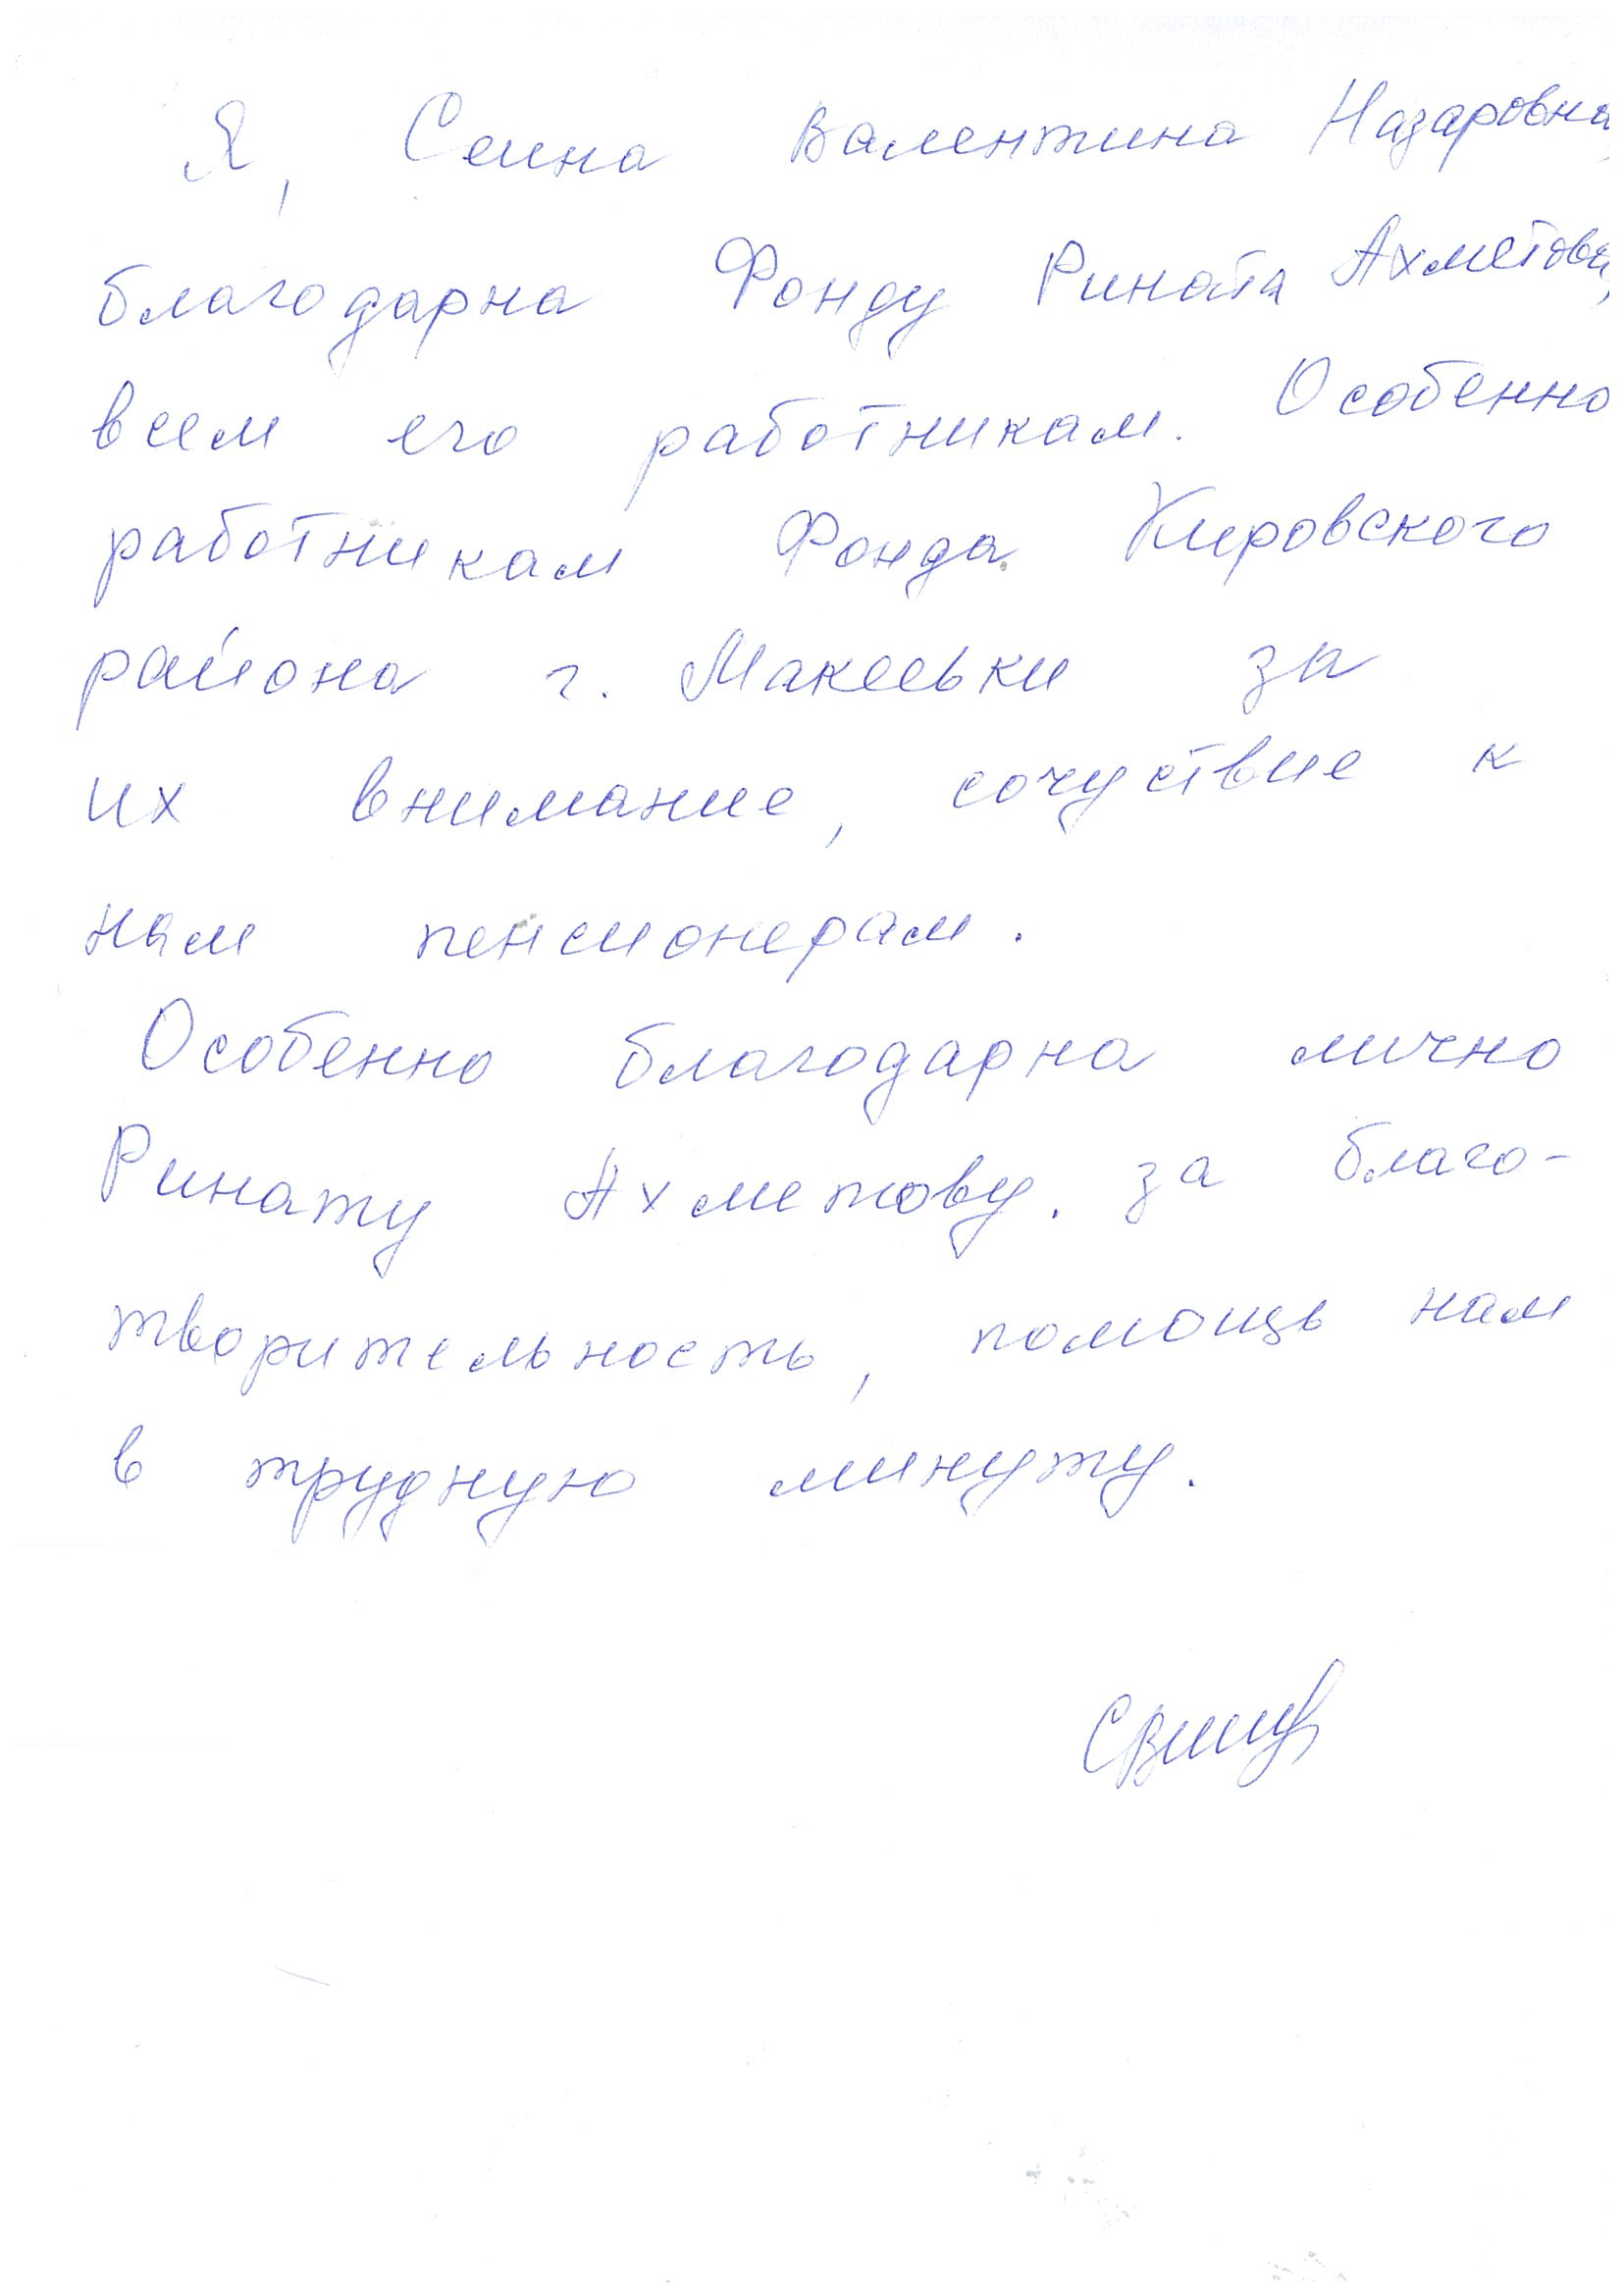 Я, Сеина Валентина Назаровна,
благодарна Фонду Рината Ахметова,
всем его работникам. Особенно
работникам Фонда Кировского
района г. Макеевки за
их внимание, сочуствие к
нам пенсионерам.
Особенно благодарна лично
Ринату Ахметову. за благо-
творительность, помощь нам
в трудную минуту.